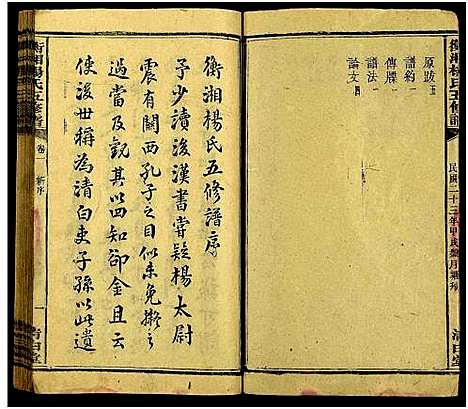 衡湘楊氏五修譜
民國二十三年甲戌蔾月乘刊
清白堂
原跋五
譜約二
傳牒一
譜法一
論文四
衡湘楊氏五修譜序
予少讀後漢書嘗疑楊太尉
震有關西孔子之目似未免擬之
過當及觀其以四知卻金且云
使後世稱為清白吏子孫以此遺
衡湘楊氏五修譜
卷一
新序
一
清白堂